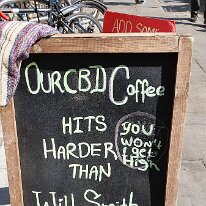 ADD SOME
OUR CBD Coffee
HITS
HARDER
THAN
Will Smith
YOU
WON'T
GET
HIGH